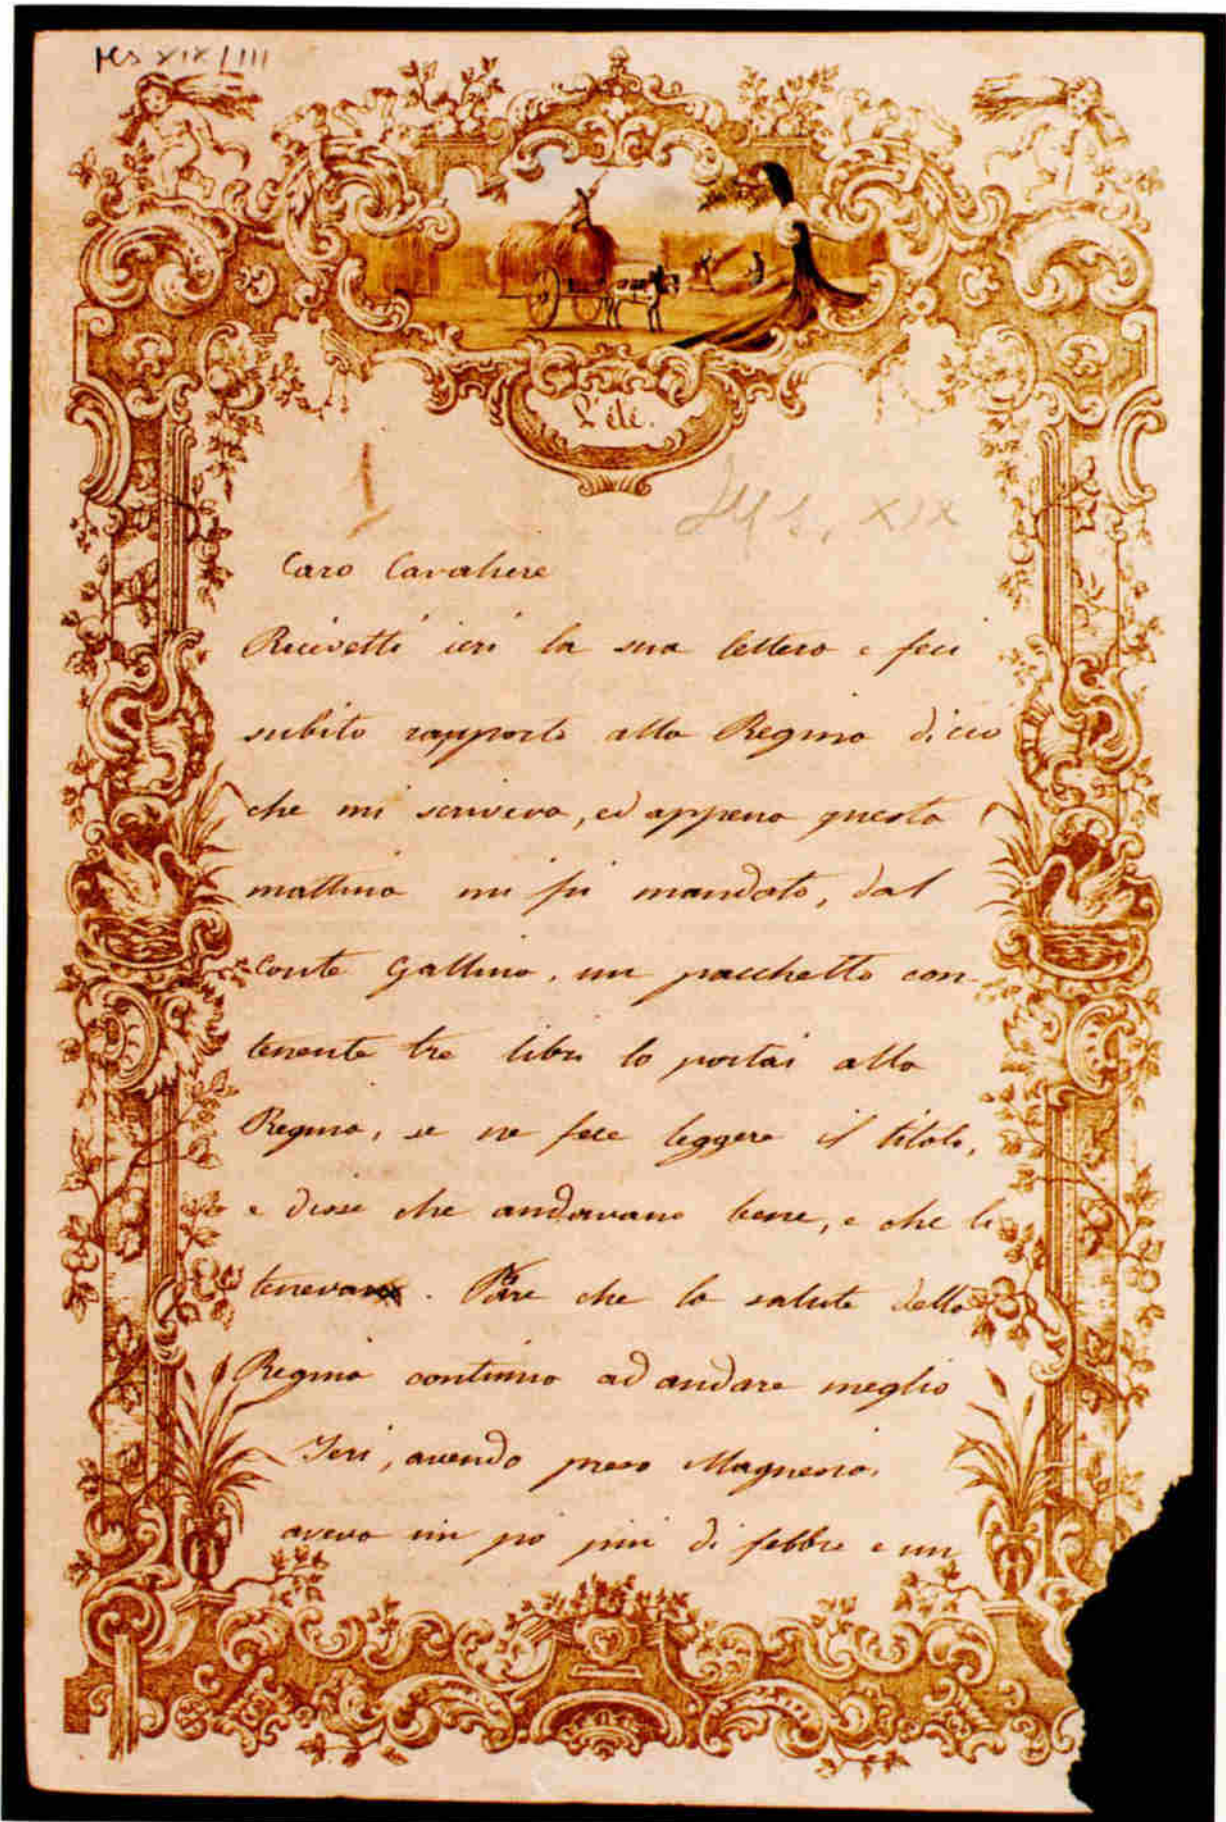 Ms XIX/III
L'été.
1
Ms. XIX
Caro Cavaliere
Ricevetti ieri la sua lettera e feci
subito rapporto alla Regina di ciò
che mi scriveva, ed appena questa
mattina mi fu mandato, dal
Conte Gallina, un pacchetto con-
tenente tre libri lo portai alla
Regina, se ne fece leggere il titolo,
e disse che andavano bene, e che li
teneva. Pare che la salute della
Regina continua ad andare meglio
Ieri, avendo preso Magnesia,
aveva un po più di febbre e un